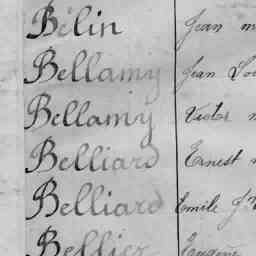 Bélin Jean
Bellamy Jean
Bellamy Victor
Belliard Ernest
Belliard Emile
Bellier Eugène